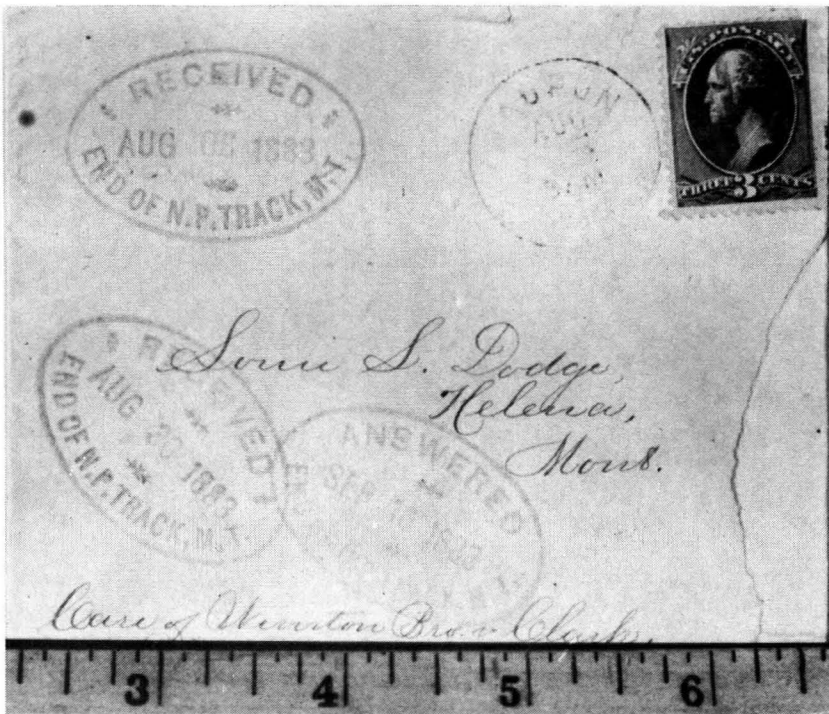 RECEIVED
AUG 1883
END OF N.P. TRACK, M.T.
AUG
U.S. POSTAGE
THREE 3 CENTS
S. Dodge,
Helena,
Mont.
RECEIVED
AUG 20 1883
END OF N.P. TRACK, M.T.
ANSWERED
SEP 1883
Care of Winston Bro. Clark.
3 4 5 6